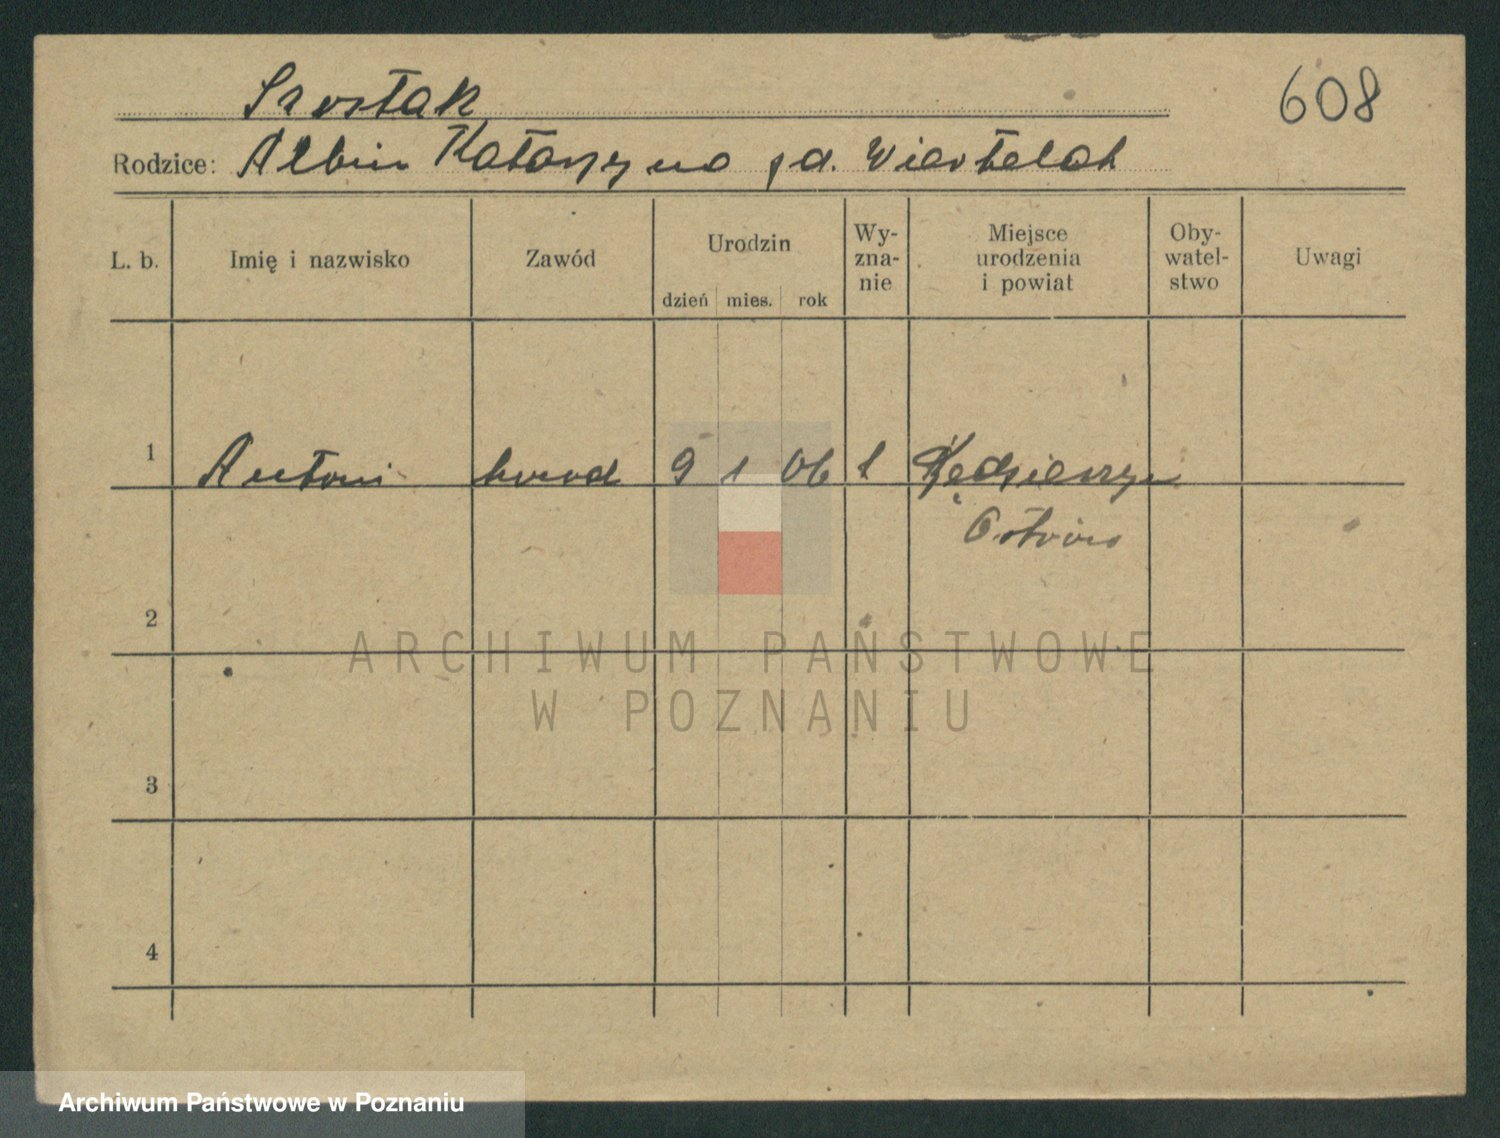 Szostak
608
Rodzice: Albin Katarzyna zd. Wiertelak
L. b. Imię i nazwisko Zawód Urodzin dzień mies. rok Wy-zna-nie Miejsce urodzenia i powiat Oby-watel-stwo Uwagi
1 Antoni 9 1 06
Ostrów
2
ARCHIWUM PAŃSTWOWE
W POZNANIU
3
4
Archiwum Państwowe w Poznaniu